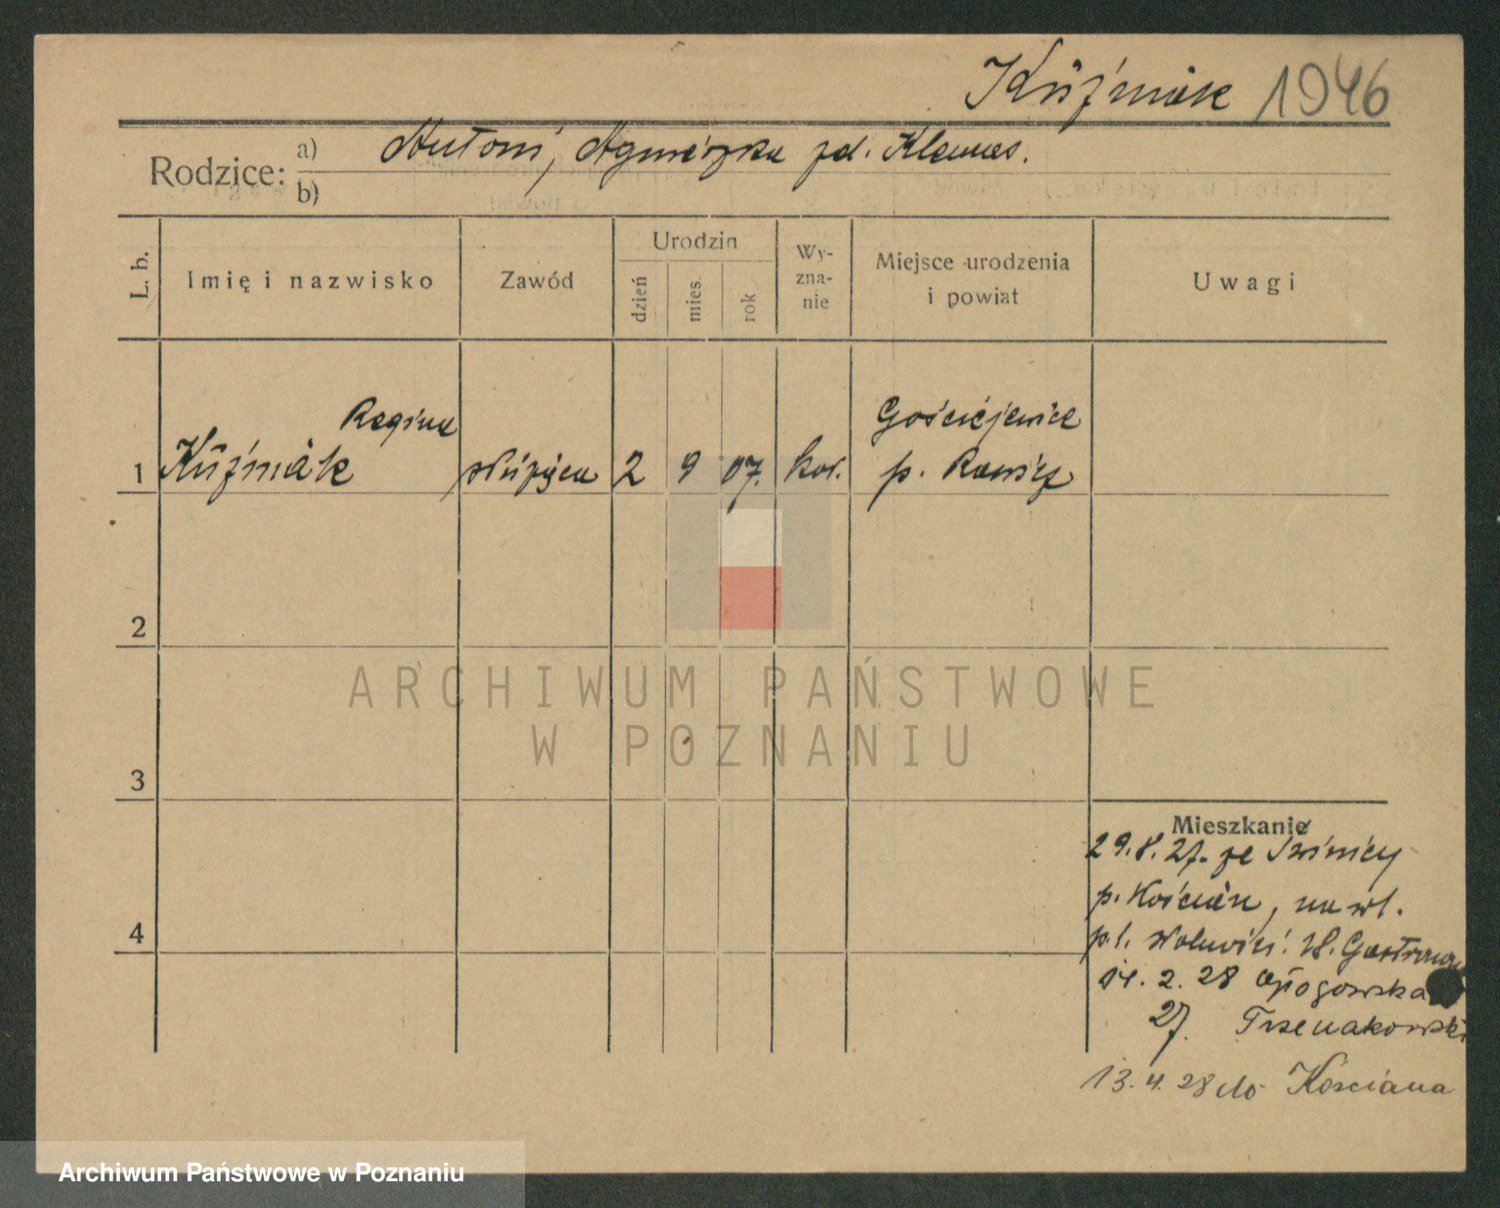 Kuźmiak 1946
Rodzice: a) Antoni, Agnieszka zd. Klemas.
b)
L. b. Imię i nazwisko Zawód Urodzin dzień mies. rok Wyznanie Miejsce urodzenia i powiat Uwagi
Regina Gościejewice
1 Kuźmiak służąca 2 9 07. kat. p. Rawicz
2
ARCHIWUM PAŃSTWOWE
W POZNANIU
3
Mieszkanie
29.8.27. ze
p. Kościan, na wł.
4
p.l. W.
14. 2. 28 Głogowska
27.
13. 4. 28 do Kościana
Archiwum Państwowe w Poznaniu